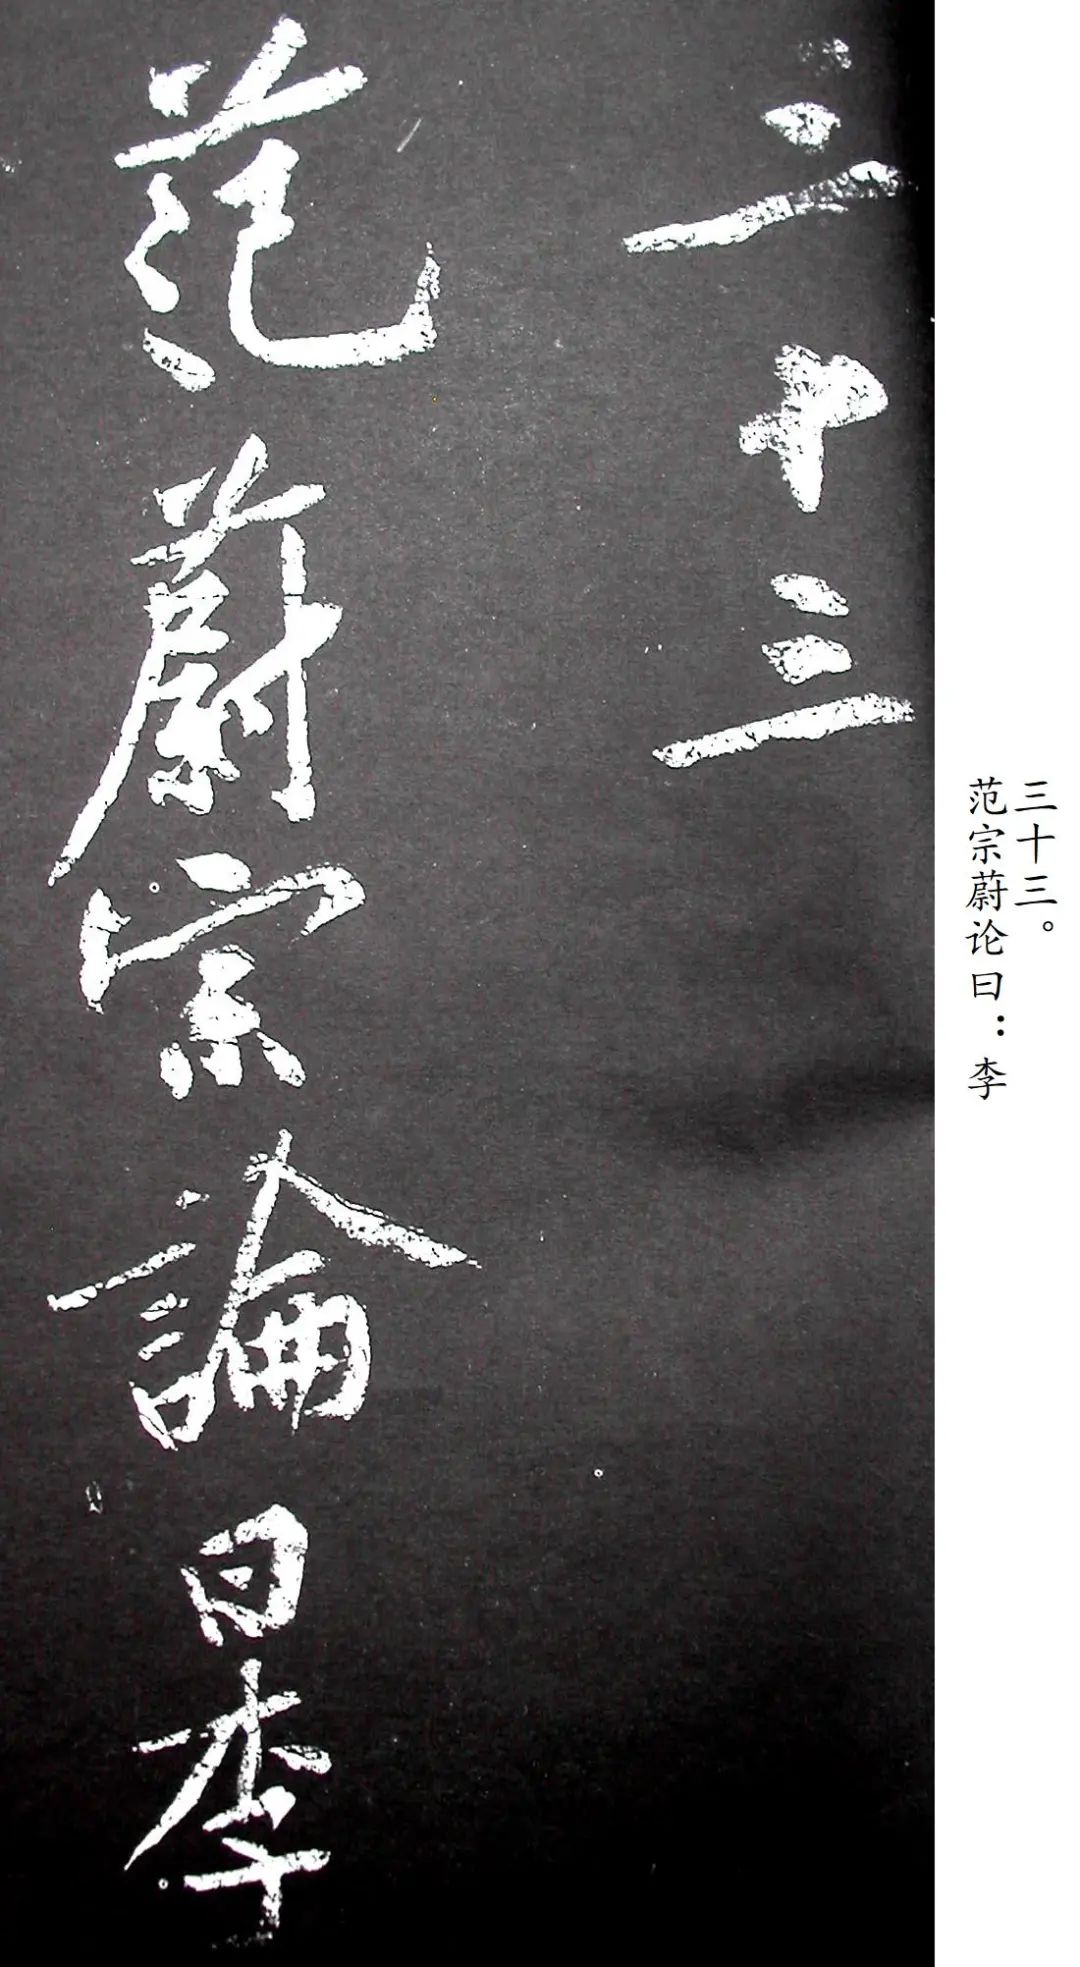 三十三
范蔚宗論曰李
三十三。
范宗蔚论曰：李